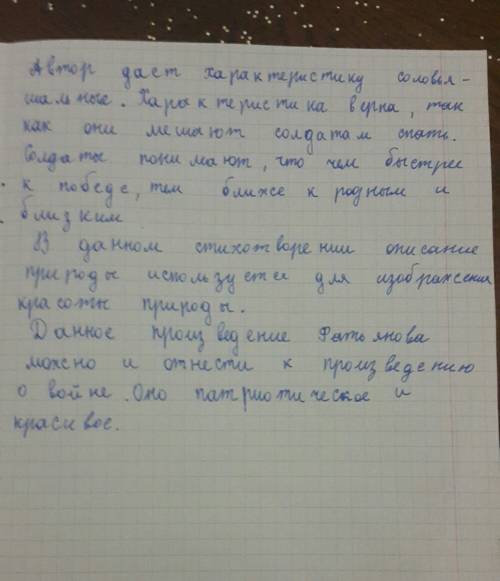 Автор даст характеристику соловья -
шальные. Характеристика верна, так
как они мешают солдатам спать.
Солдаты понимают, что чем быстрее
к победе, тем ближе к родным и
близким
В данном стихотворении описание
природы используется для изображения
красоты природы.
Данное произведение Фатьянова
можно и отнести к произведению
о войне. Оно патриотическое и
красивое.